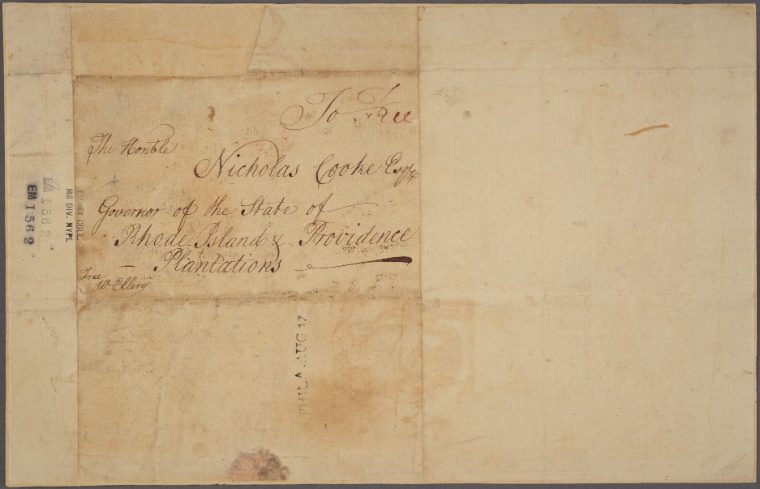 To Free
The Honble
Nicholas Cooke Esqr
Governor of the State of
Rhode Island & Providence
Plantations
Free
W Ellery
PHILA. AUG 17
EMMET COLL.
MS DIV. NYPL
EM 1562
EM 1562